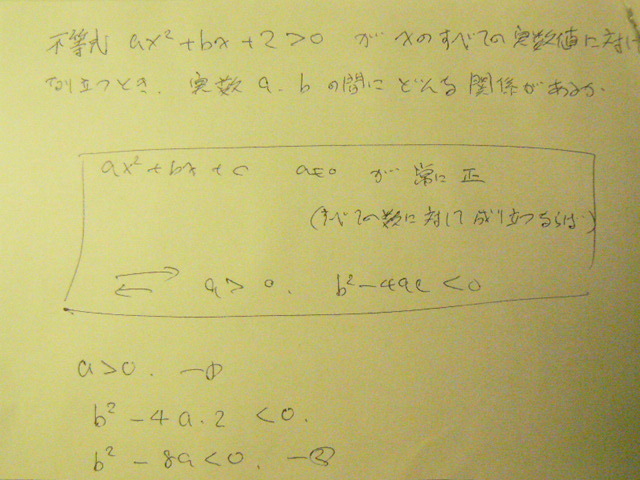 不等式 ax²+bx+2>0 が xのすべての実数値に対し
成り立つとき. 実数 a. b の間に どんな 関係があるか.
ax²+bx+c a≠0 が 常に 正
(すべての数に対して 成り立つならば)
⇄ a>0. b²-4ac<0
a>0. —①
b²-4a.2 <0.
b²-8a<0. —②